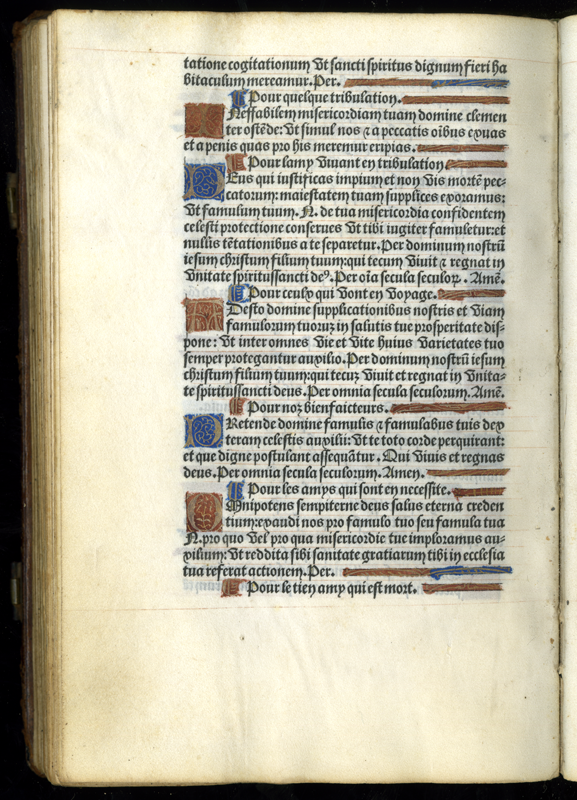 tatione cogitationum Vt sancti spiritus dignum fieri ha
bitaculum mereamur. Per.
Pour quelque tribulation.
INeffabilem misericordiam tuam domine clemen
ter ostēde: Vt simul nos ⁊ a peccatis oībus exuas
et a penis quas pro his meremur eripias.
Pour lamy Viuant en tribulation
DEus qui iustificas impium et non Vis mortē pec-
catorum: maiestatem tuam supplices exoramus:
Vt famulum tuum. N. de tua misericordia confidentem
celesti protectione conserues Vt tibi iugiter famuletur: et
nullis tētationibus a te separetur. Per dominum nostrū
iesum christum filium tuum: qui tecum Viuit ⁊ regnat in
Vnitate spiritussancti deꝰ. Per oīa secula seculoꝝ. Amē.
Pour ceulx qui Vont en Voyage.
ADesto domine supplicationibus nostris et Viam
famulorum tuoruz in salutis tue prosperitate dis-
pone: Vt inter omnes Vie et Vite huius Varietates tuo
semper protegantur auxilio. Per dominum nostrū iesum
christum filium tuum: qui tecuz Viuit et regnat in Vnita-
te spiritussancti deus. Per omnia secula seculorum. Amē.
Pour noz bienfaicteurs.
PRetende domine famulis ⁊ famulabus tuis dex
teram celestis auxilii: Vt te toto corde perquirant:
et que digne postulant assequātur. Qui Viuis et regnas
deus. Per omnia secula seculorum. Amen.
Pour les amys qui sont en necessite.
OMnipotens sempiterne deus salus eterna creden
tium: exaudi nos pro famulo tuo seu famula tua
N. pro quo Vel pro qua misericordie tue imploramus au-
xilium: Vt reddita sibi sanitate gratiarum tibi in ecclesia
tua referat actionem. Per.
Pour le tien amy qui est mort.